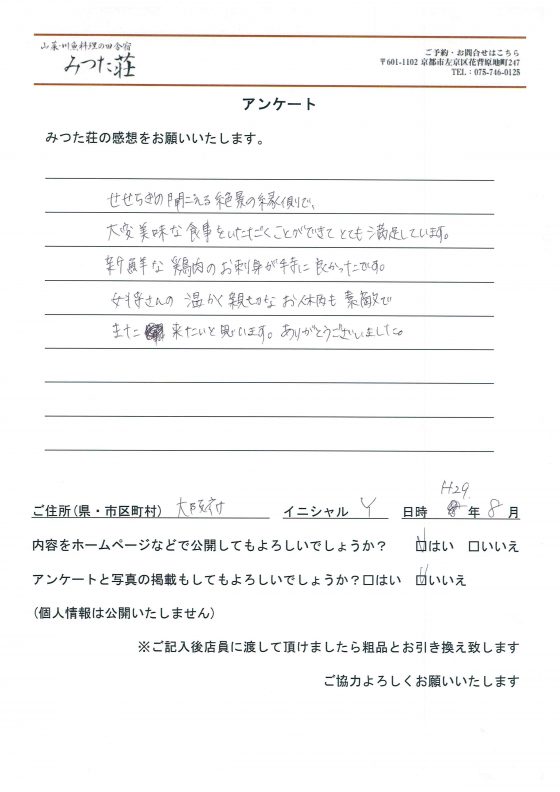 山菜・川魚料理の田舎宿
みつた荘
ご予約・お問合せはこちら
〒601-1102 京都市左京区花脊原地町247
TEL：075-746-0125
アンケート
みつた荘の感想をお願いいたします。
せせらぎの聞こえる絶景の縁側で、
大変美味な食事をいただくことができてとても満足しています。
新鮮な鶏肉のお刺身が特に良かったです。
女将さんの温かく親切なお人柄も素敵で
また 来たいと思います。ありがとうございました。
ご住所(県・市区町村) 大阪府 イニシャル Y 日時 H29. 年 8 月
内容をホームページなどで公開してもよろしいでしょうか？ ☑はい □いいえ
アンケートと写真の掲載もしてもよろしいでしょうか？□はい ☑いいえ
(個人情報は公開いたしません)
※ご記入後店員に渡して頂けましたら粗品とお引き換え致します
ご協力よろしくお願いいたします